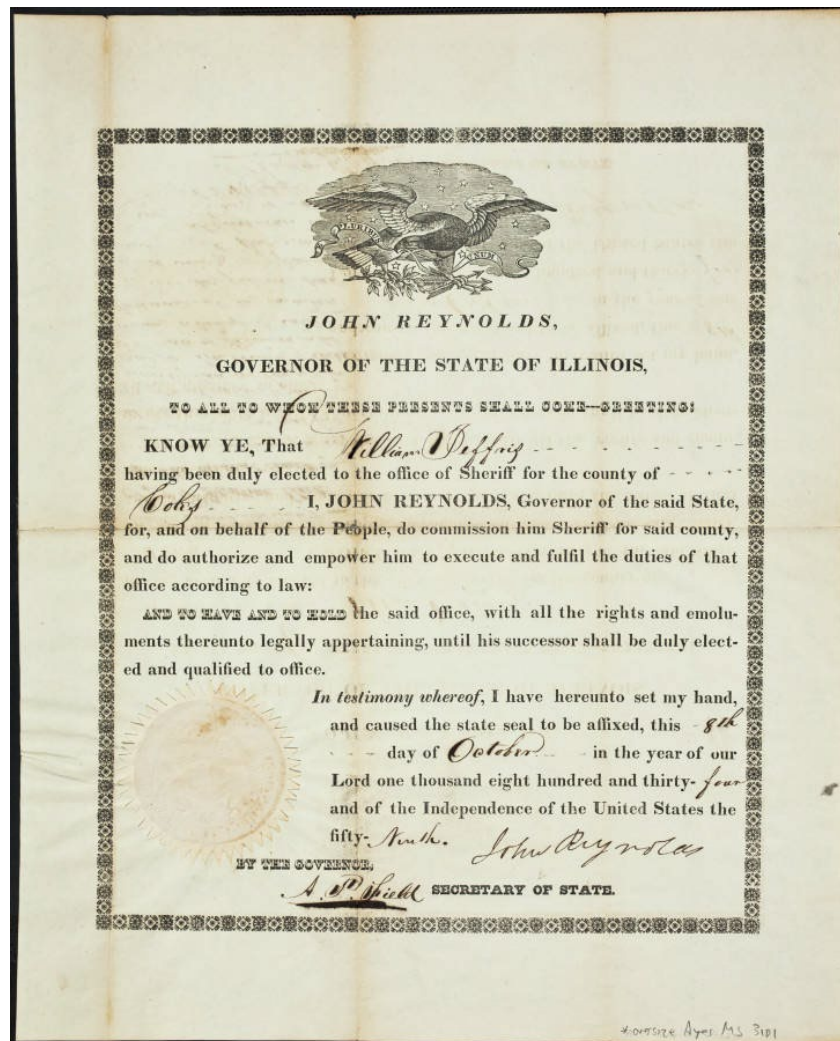 PLURIBUS
UNUM
JOHN REYNOLDS,
GOVERNOR OF THE STATE OF ILLINOIS,
TO ALL TO WHOM THESE PRESENTS SHALL COME---GREETING:
KNOW YE, That William Deffris - - - - - - - - -
having been duly elected to the office of Sheriff for the county of - - - -
I, JOHN REYNOLDS, Governor of the said State,
for, and on behalf of the People, do commission him Sheriff for said county,
and do authorize and empower him to execute and fulfil the duties of that
office according to law:
AND TO HAVE AND TO HOLD the said office, with all the rights and emolu-
ments thereunto legally appertaining, until his successor shall be duly elect-
ed and qualified to office.
In testimony whereof, I have hereunto set my hand,
and caused the state seal to be affixed, this - 8th
- - - day of October - - in the year of our
Lord one thousand eight hundred and thirty-four
and of the Independence of the United States the
fifty-Ninth.
John Reynolds
BY THE GOVERNOR,
A. P. Field SECRETARY OF STATE.
*oversize Ayer MS 3101